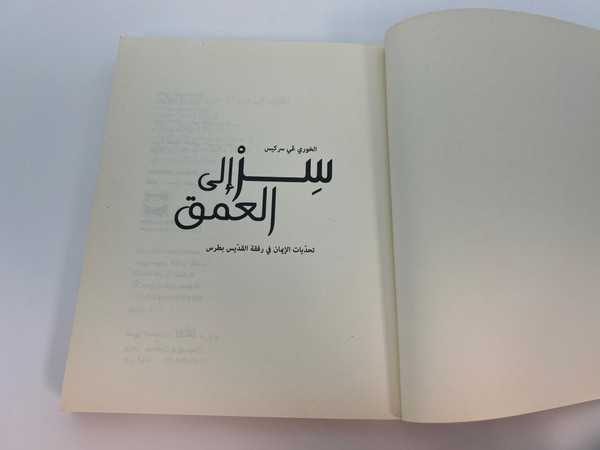 الخوري غي سركيس
سِــرْ إلى
العمق
تحدّيات الإيمان في رفقة القدّيس بطرس